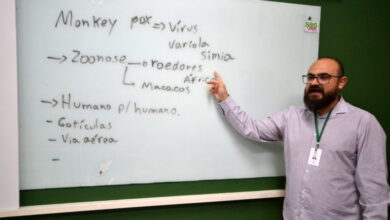 Monkey pox => Vírus
varíola
símia
-> Zoonose -> roedores
África
Macacos
-> Humano p/ humano.
- Gotículas
- Via aérea
-